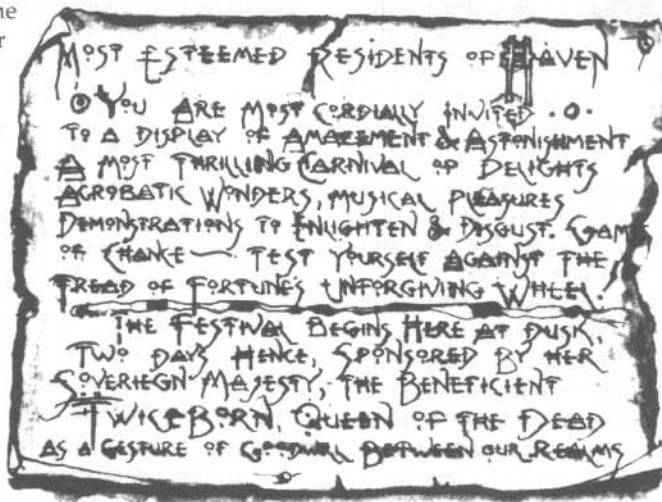 ne
r
MOST ESTEEMED RESIDENTS OF HAVEN
YOU ARE MOST CORDIALLY INVITED
TO A DISPLAY OF AMAZEMENT & ASTONISHMENT
A MOST THRILLING CARNIVAL OF DELIGHTS
ACROBATIC WONDERS, MUSICAL PLEASURES
DEMONSTRATIONS TO ENLIGHTEN & DISGUST. GAME
OF CHANCE — TEST YOURSELF AGAINST THE
TREAD OF FORTUNE'S UNFORGIVING WHEEL.
THE FESTIVAL BEGINS HERE AT DUSK,
TWO DAYS HENCE, SPONSORED BY HER
SOVERIEGN MAJESTY, THE BENEFICIENT
TWICEBORN, QUEEN OF THE DEAD
AS A GESTURE OF GOODWILL BETWEEN OUR REALMS